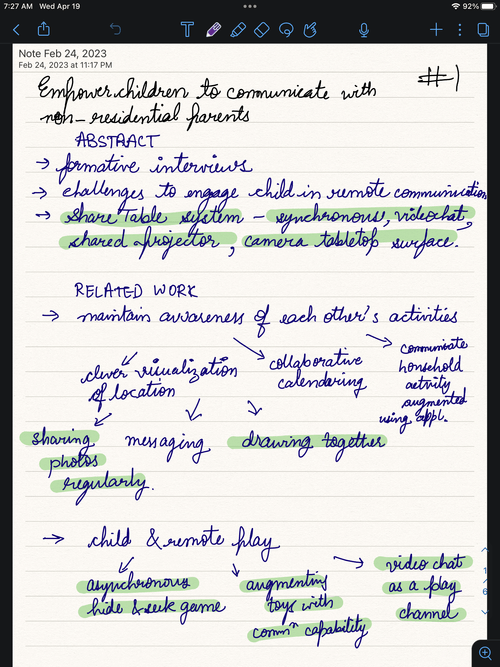 7:27 AM Wed Apr 19
92%
Note Feb 24, 2023
Feb 24, 2023 at 11:17 PM
#1
Empower children to communicate with
non-residential parents
ABSTRACT
→ formative interviews
→ challenges to engage child in remote communication
→ Share Table system - synchronous, videochat,
shared projector, camera tabletop surface.
RELATED WORK
→ maintain awareness of each other's activities
clever visualization
of location
collaborative
calendering
communicate
household
activity
augmented
using appl.
sharing
photos
regularly.
messaging
drawing together
→ child & remote play
asynchronous
hide & seek game
augmenting
toys with
commⁿ capability
video chat
as a play
channel
1
6